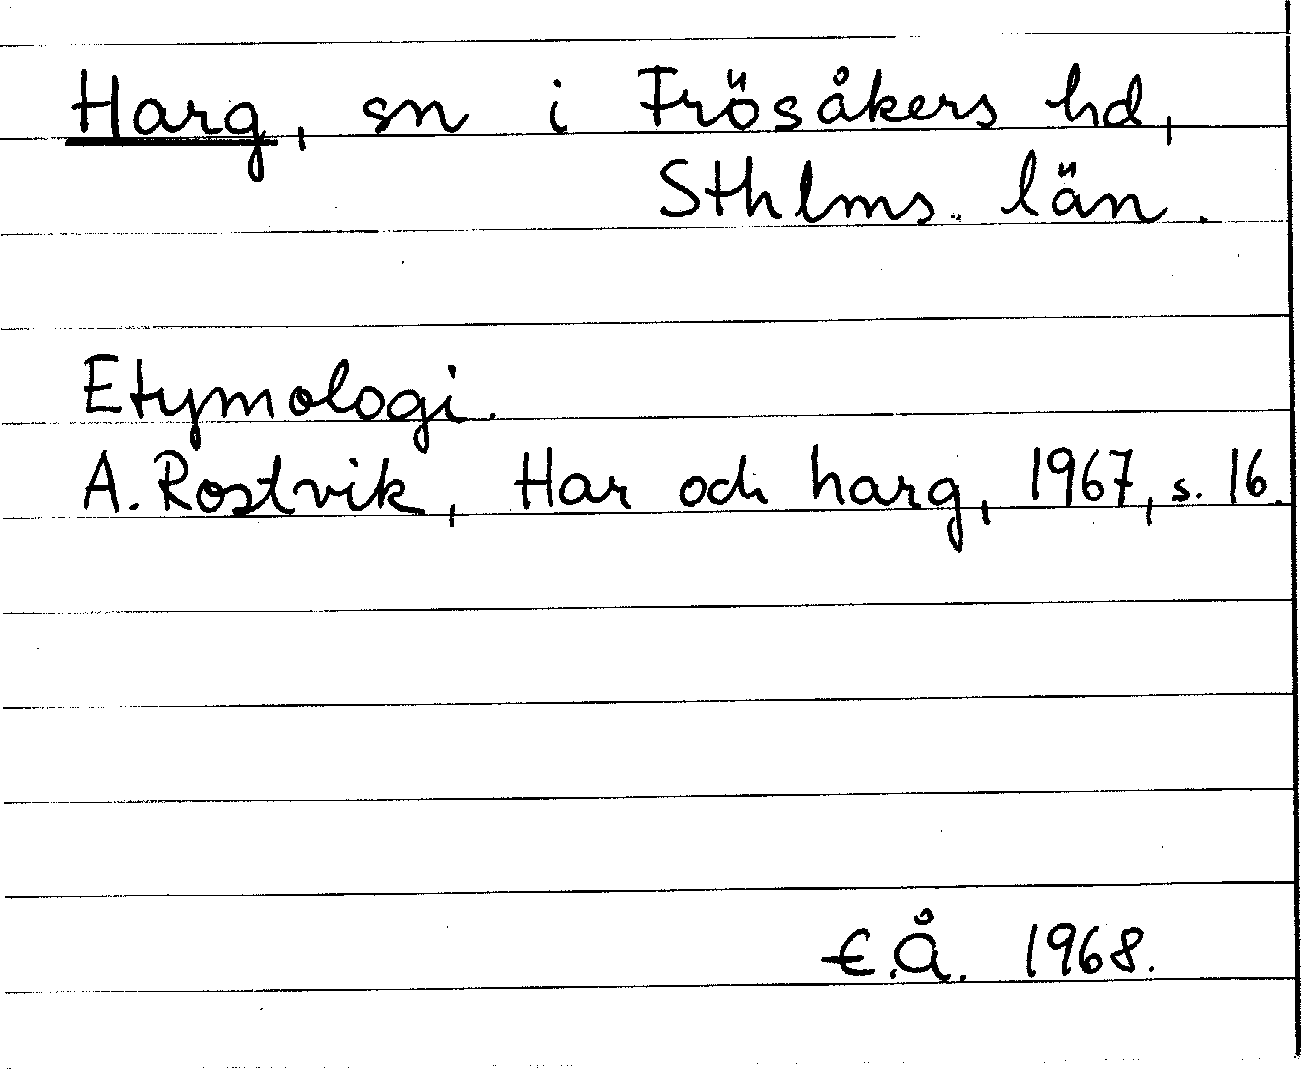 Harg, sn i Frösåkers hd,
Sthlms. län.
Etymologi.
A. Rostvik, Har och harg, 1967, s. 16.
E.Å. 1968.